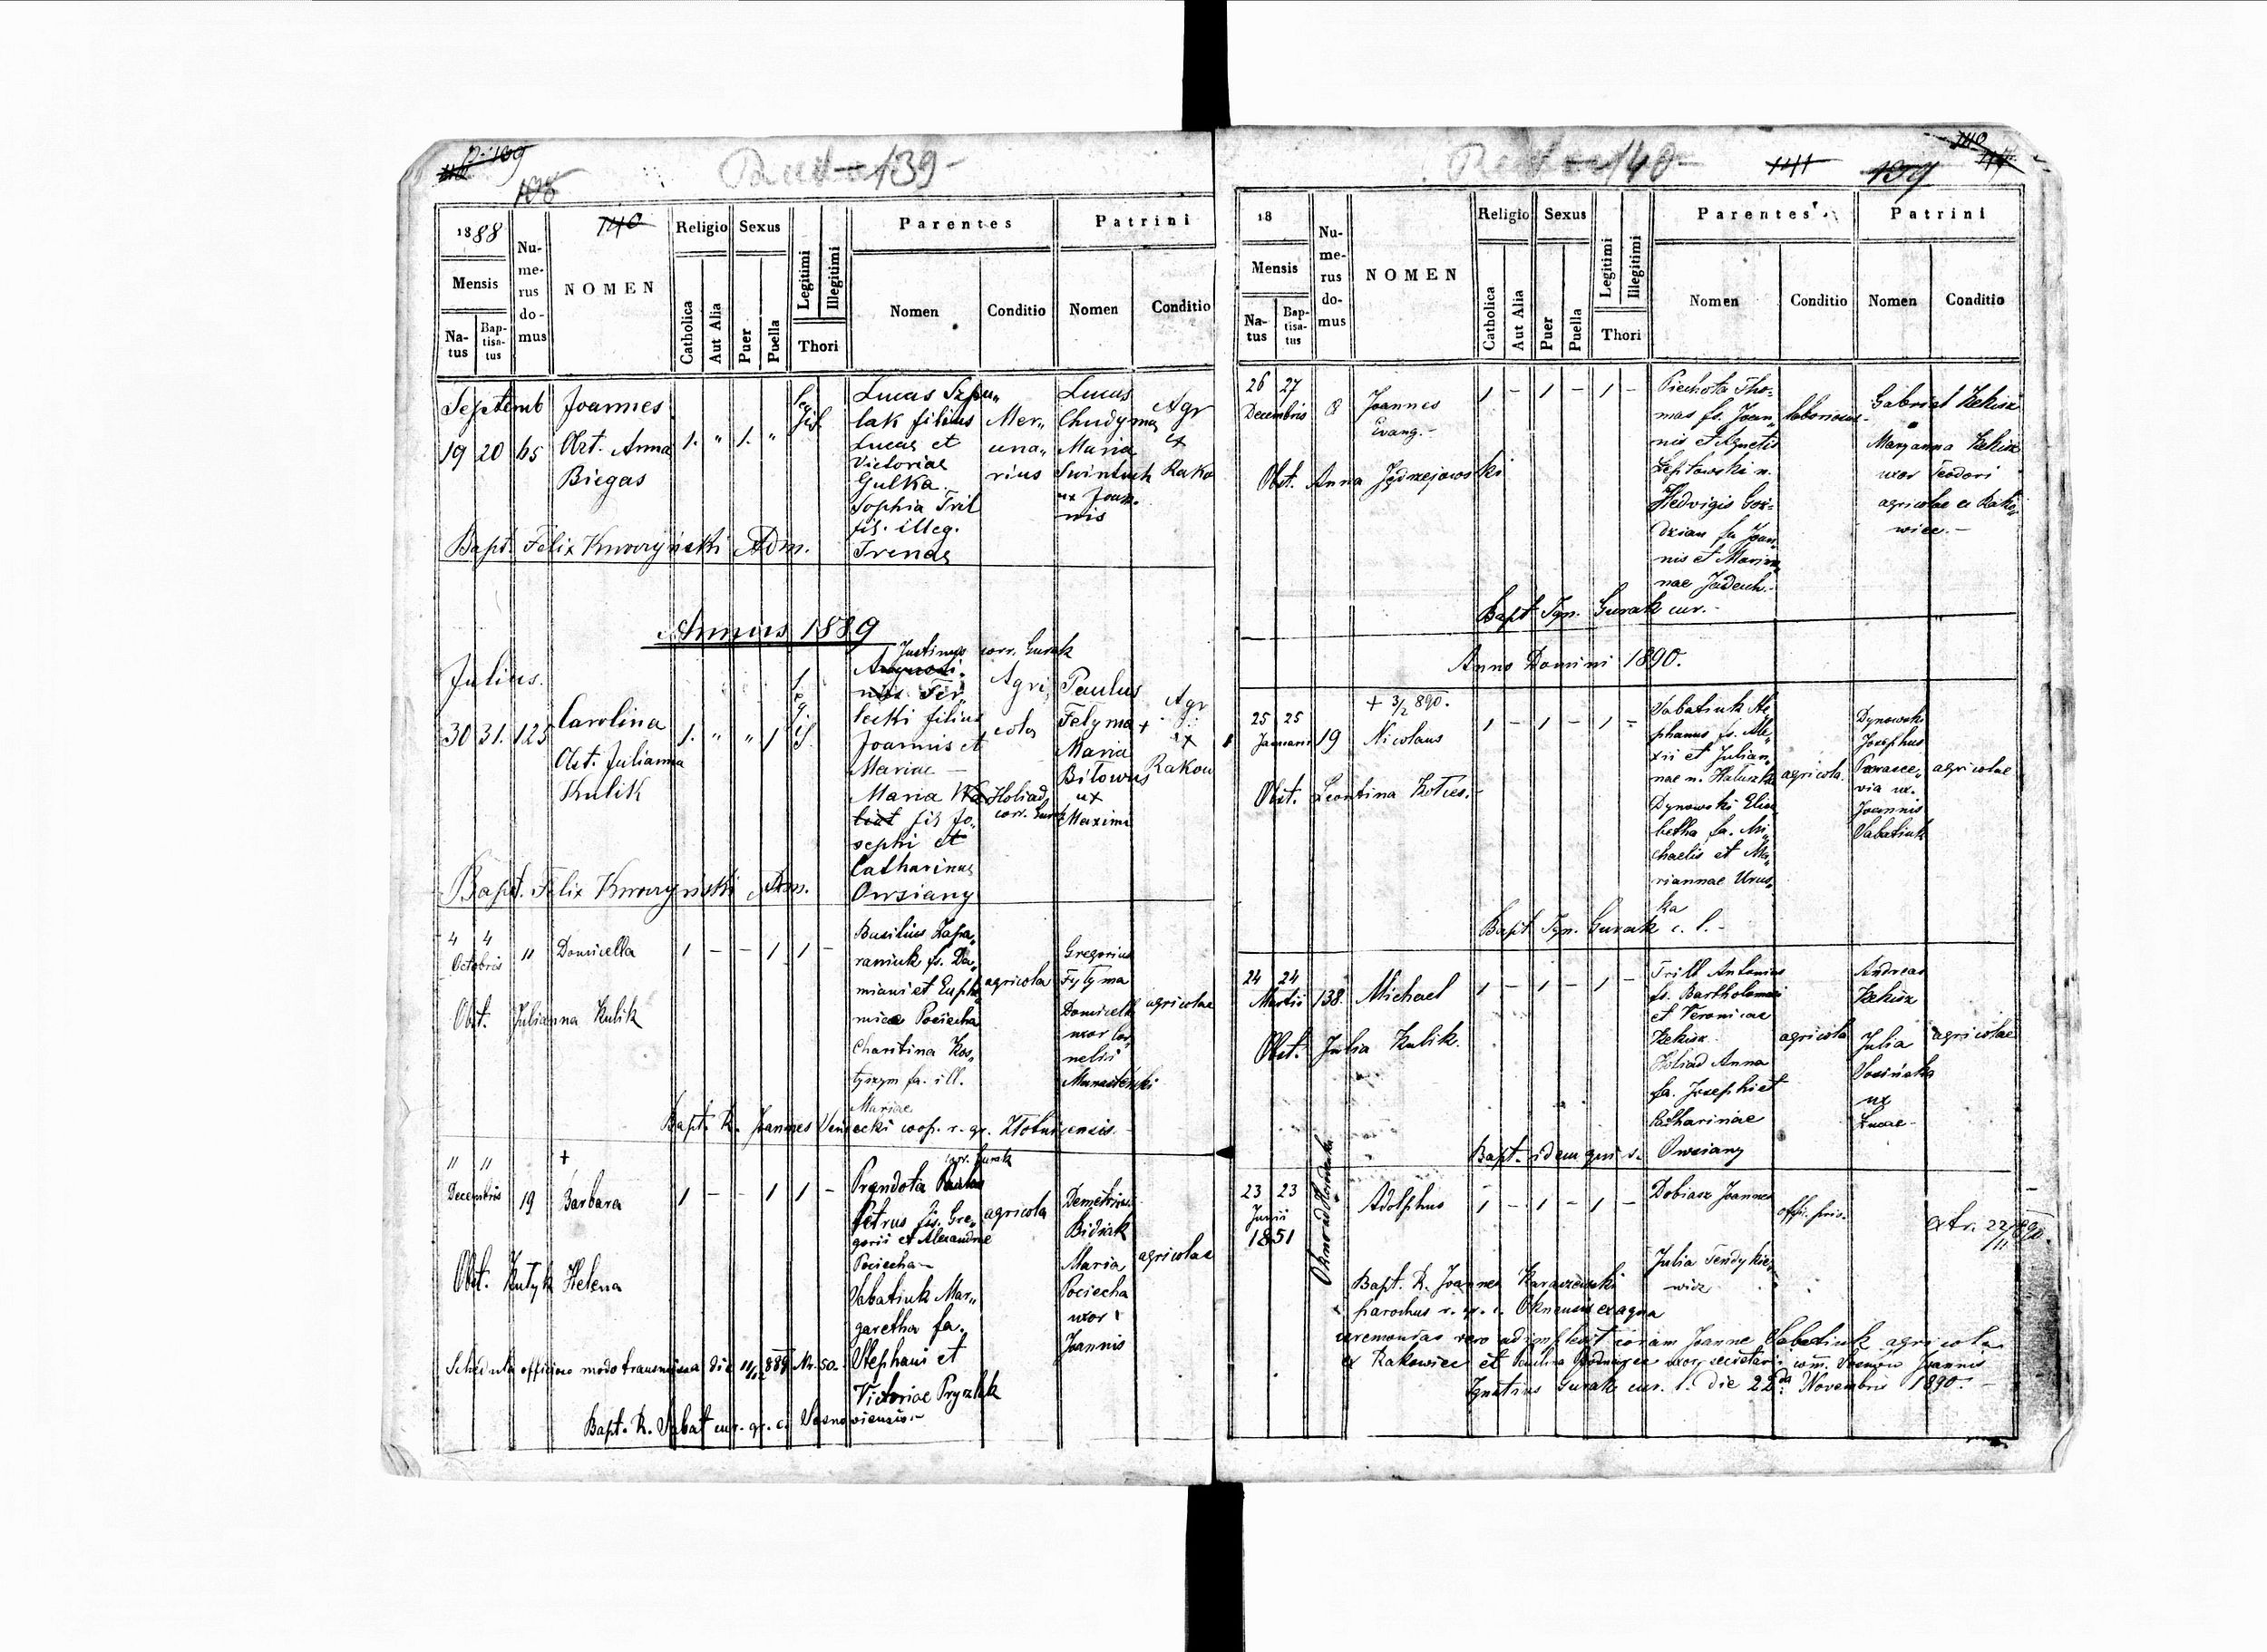 139
1888
Mensis
Na-
tus
Bap-
tisa-
tus
Nu-
me-
rus
do-
mus
140
NOMEN
Religio
Catholica
Aut Alia
Sexus
Puer
Puella
Legitimi
Illegitimi
Thori
Parentes
Nomen
Conditio
Patrini
Nomen
Conditio
Septemb
19 20 65
Joannes
Obst. Anna
Biegas
1. " 1. "
Lucas Szpu„
lak filius
Lucae et
Victoriae
Gulka.
Sophia Tril
fil. illeg.
Irenae
Mer„
cena„
rius
Lucas
Chudyma
Maria
Swintuch
ux Joan.
nis
Agr
ex
Rako
Bapt. Felix Kwoczyński Adm.
Annus 1889
Julius.
30 31. 125
Carolina
Obst. Julianna
Kulik
1. " " 1
Justinus corr. Gurak
lecki filius
Joannis et
Mariae
Maria
Holiad
corr. Gurak
fil Jo„
sephi et
Catharinae
Owsiany
Agri„
cola
Paulus
Felyma +
Maria
Bilowus
ux
Maximi
Agr
Rakow
Bapt. Felix Kwoczyński Adm.
4 4
Octobris
"
Domicella
1 - - 1 1 -
Obst. Julianna Kulik
Basilius Zapa„
raniuk fs. Da„
miani et Euphe
miae Pociecha
Charitina Kos„
tyszym fa. ill.
Mariae
agricola
Gregorius
Fylyma
Domicella
uxor Cor„
nelii
agricolae
Bapt. R. Joannes coop. r. gr. Złotnicensis.
" "
Decembris 19
+
Barbara
1 - - 1 1 -
corr. Gurak
Prendota
Petrus fs. Gre„
gorii et Alexandrae
Pociecha
Sabatiuk Mar„
garetha fa.
Stephani et
Victoriae Pryszlak
agricola
Demetrius
Bidiak
Maria
Pociecha
uxor
Joannis
agricolae
Obst. Kutyk Helena
Schedula officiose modo transmissa die Nr. 50.
Bapt. R. Sabat cur. gr. c. Sosnoviensis.
140
141
139
18
Mensis
Na-
tus
Bap-
tisa-
tus
Nu-
me-
rus
do-
mus
NOMEN
Religio
Catholica
Aut Alia
Sexus
Puer
Puella
Legitimi
Illegitimi
Thori
Parentes
Nomen
Conditio
Patrini
Nomen
Conditio
26 27
Decembris 8
Joannes
Evang.
1 - 1 - 1 -
Obst. Anna Jędrzejowski
Piechota Tho-
mas fs. Joan„
nis et Agnetis
Leptowski n.
Hedvigis Goź-
dzian fa Joan„
nis et Marian„
nae Judeuh.
laboriosus
Gabriel Kekisz
Maryanna Kekisz
uxor Teodori
agricolae e Rako„
wiec.
Bapt Ign. Gurak cur.
Anno Domini 1890.
+ 3/2 890.
25 25
Januarii 19
Nicolaus
1 - 1 - 1 -
Obst. Leontina Koties.
Sabatiuk Ste
phanus fs. Ale„
xii et Julian„
nae n. Haluszka
Dynowski Elisa
betha fa. Mi„
chaelis et Ma„
riannae Urus„
ka
agricola
Dynowski
Josephus
Parasce„
via ux.
Joannis
Sabatiuk
agricolae
Bapt Ign. Gurak c. l.
24 24
Martii 138.
Michael
1 - 1 - 1 -
Obst. Julia Kulik.
Trill Antonius
fs. Bartholomaei
et Veronicae
Kekisz
Holiad Anna
fa. Josephi et
Catharinae
Owsiany
agricola
Andreas
Kekisz
Julia
Sosińska
ux
Lucae
agricolae
Bapt. idem qui s.
23 23
Junii
1851
Okno ad Horodenka
Adolphus
1 - 1 - 1 -
Dobiasz Joannes
Julia Tendykie„
wicz
offic. priv.
extr. 22/11 890.
Bapt. R. Joannes Karaszewski
parochus r. gr. c. Oknensis ex aqua
ceremonias vero adimplevit coram Joanne Sabatiuk agricola
ex Rakowiec et Paulina uxore secretarii com. Joannis
Ignatius Gurak cur. l. die 22da Novembris 1890.